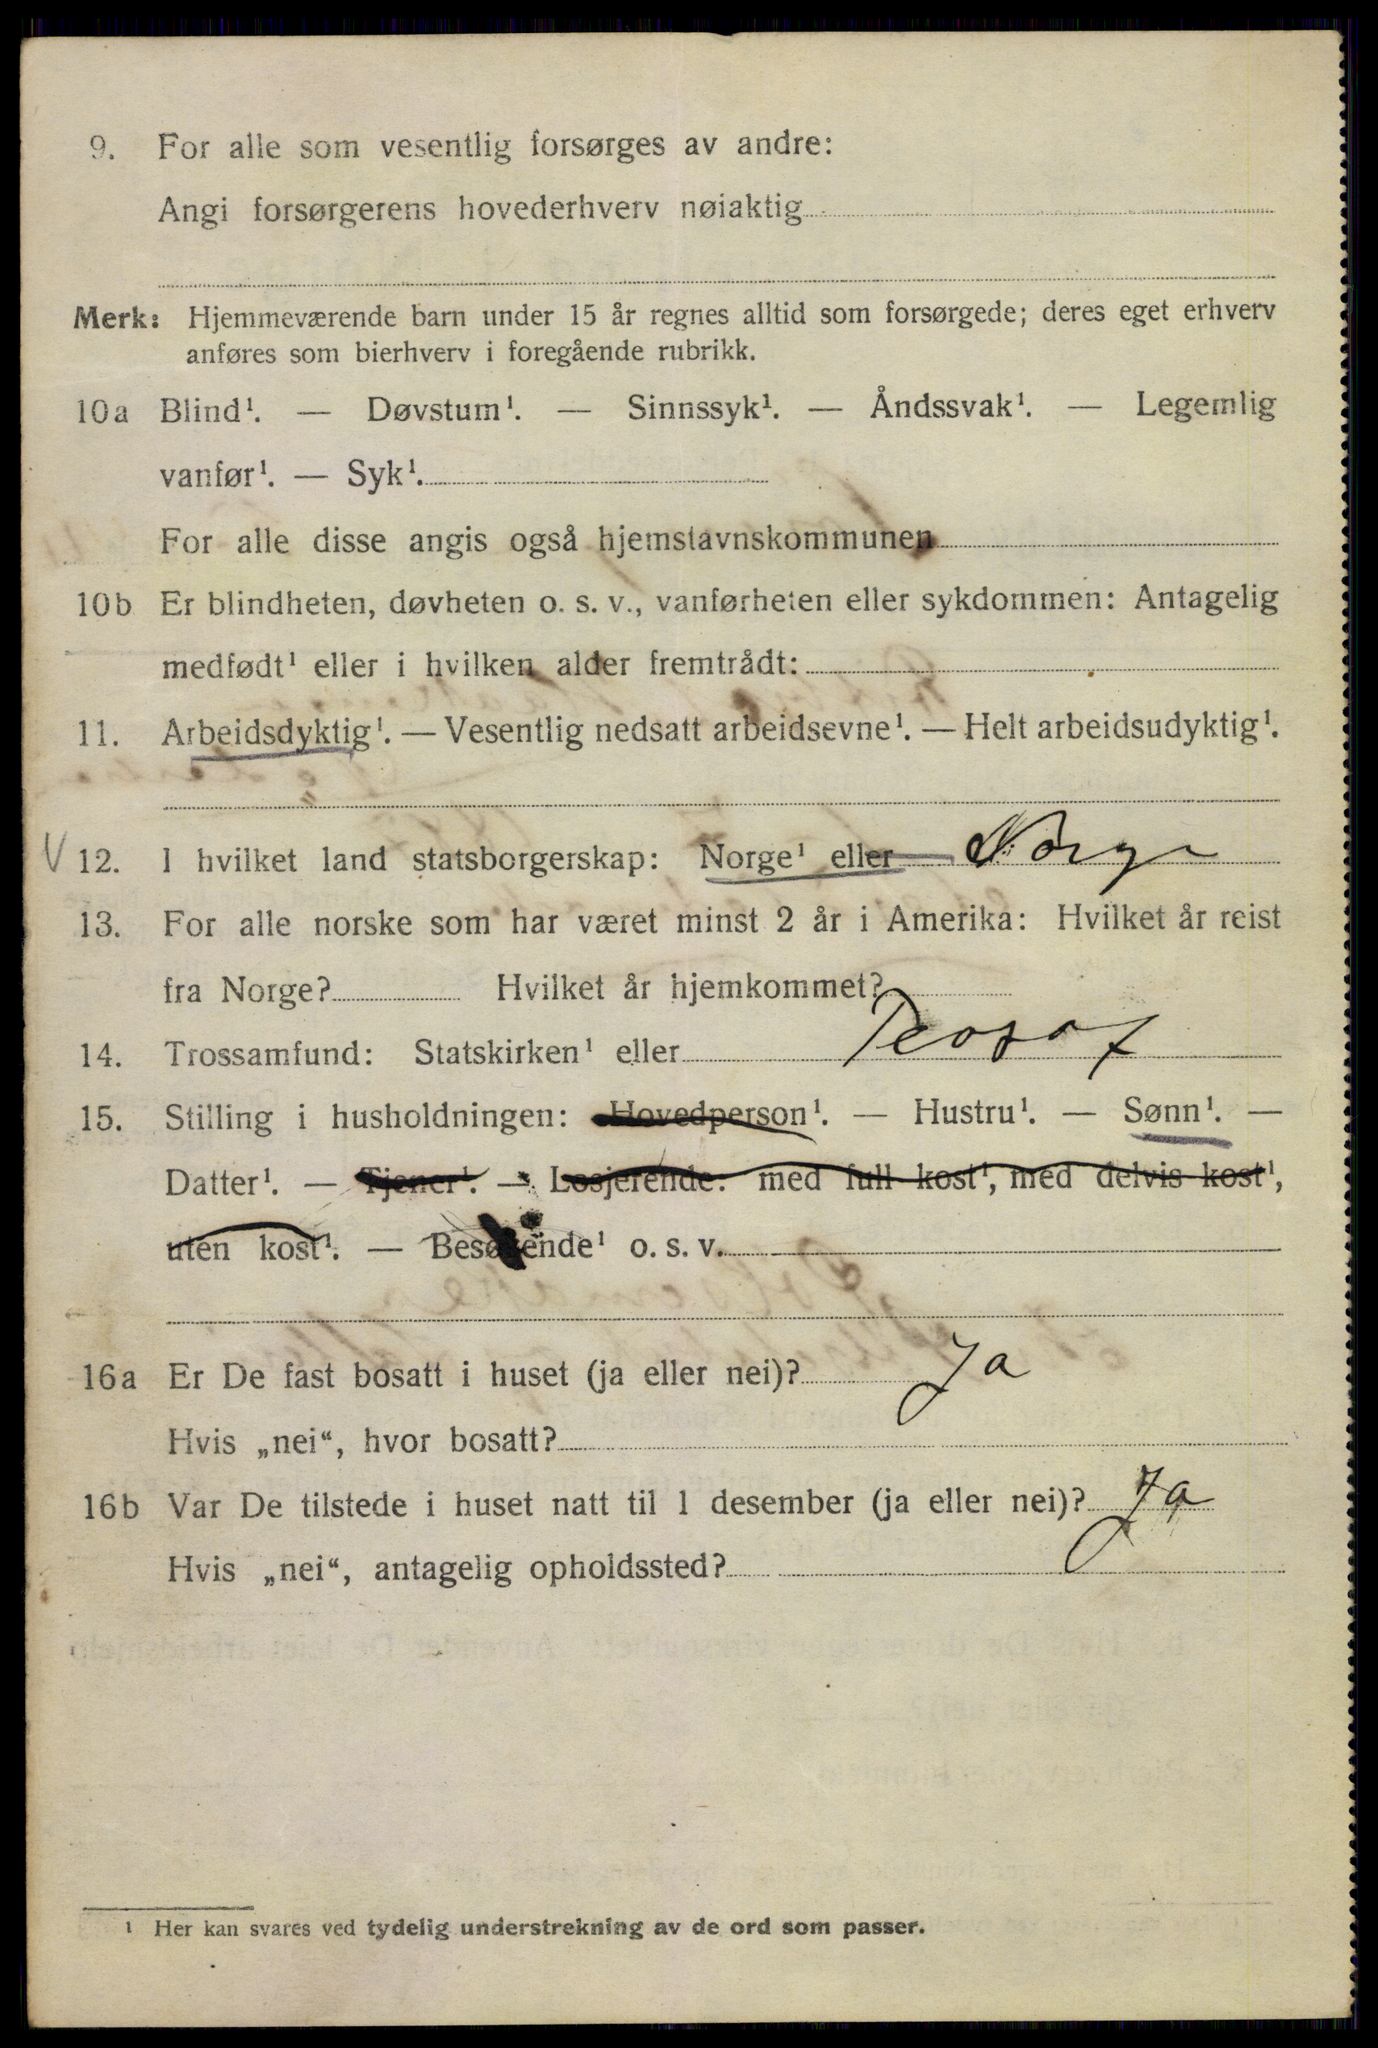 9. For alle som vesentlig forsørges av andre:
Angi forsørgerens hovederhverv nøiaktig
Merk: Hjemmeværende barn under 15 år regnes alltid som forsørgede; deres eget erhverv
anføres som bierhverv i foregående rubrikk.
10a Blind¹. — Døvstum¹. — Sinnssyk¹. — Åndssvak¹. — Legemlig
vanfør¹. — Syk¹.
For alle disse angis også hjemstavnskommunen
10b Er blindheten, døvheten o. s. v., vanførheten eller sykdommen: Antagelig
medfødt¹ eller i hvilken alder fremtrådt:
11. Arbeidsdyktig¹. — Vesentlig nedsatt arbeidsevne¹. — Helt arbeidsudyktig¹.
V 12. I hvilket land statsborgerskap: Norge¹ eller Norge
13. For alle norske som har været minst 2 år i Amerika: Hvilket år reist
fra Norge? Hvilket år hjemkommet?
14. Trossamfund: Statskirken¹ eller Teosof
15. Stilling i husholdningen: Hovedperson¹. — Hustru¹. — Sønn¹. —
Datter¹. — Tjener¹. — Losjerende: med full kost¹, med delvis kost¹,
uten kost¹. — Besøkende¹ o. s. v.
16a Er De fast bosatt i huset (ja eller nei)? Ja
Hvis „nei“, hvor bosatt?
16b Var De tilstede i huset natt til 1 desember (ja eller nei)? Ja
Hvis „nei“, antagelig opholdssted?
¹ Her kan svares ved tydelig understrekning av de ord som passer.